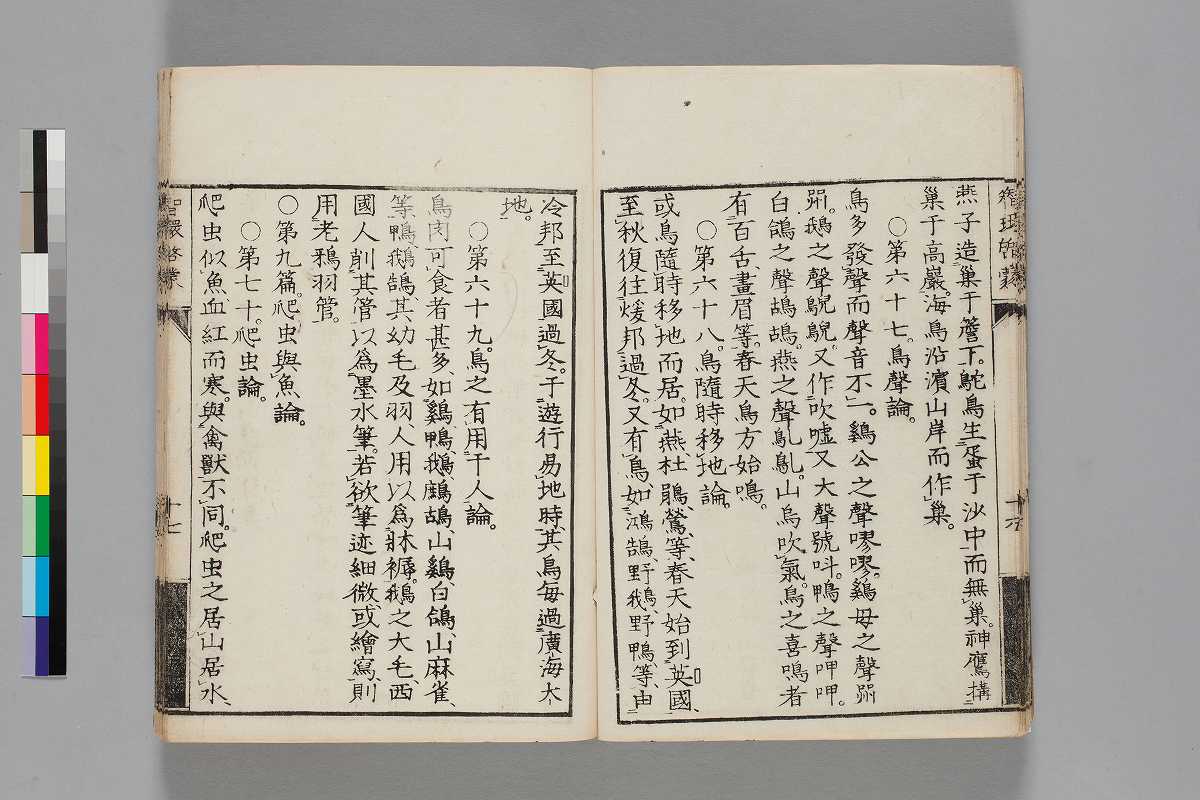 智環啓蒙
燕子造巢于簷下。鴕鳥生蛋于沙中而無巢。神鷹搆
巢于高巖、海鳥沿濱山岸而作巢。
〇第六十七。鳥聲論。
鳥多發聲而聲音不一。鷄公之聲嘐嘐。鷄母之聲
。鵝之聲鶃鶃。又作吹噓又大聲號呌。鴨之聲呷呷。
白鴿之聲鴣鴣。燕之聲。山烏吹氣。鳥之喜鳴者
有百舌、畫眉等。春天鳥方始鳴。
〇第六十八。鳥隨時移地論。
或鳥隨時移地而居。如燕、杜鵑、鶯、等、春天始到英國、
至秋復往煖邦過冬。又有鳥如鴻鵠、野鵝、野鴨、等、由
十六
冷邦至英國過冬。于遊行易地時、其鳥每過廣海大
地。
〇第六十九。鳥之有用于人論。
鳥肉可食者甚多、如鷄、鴨、鵝、鷓鴣、山鷄、白鴿、山麻雀、
等、鴨、鵝、鵠、其幼毛及羽、人用以爲牀褥。鵝之大毛、西
國人削其管、以爲墨水筆。若欲筆迹細微、或繪寫、則
用老鴉羽管。
〇第九篇。爬虫與魚論。
〇第七十。爬虫論。
爬虫似魚、血紅而寒。與禽獸不同。爬虫之居、山居水、
智環啓蒙
十七